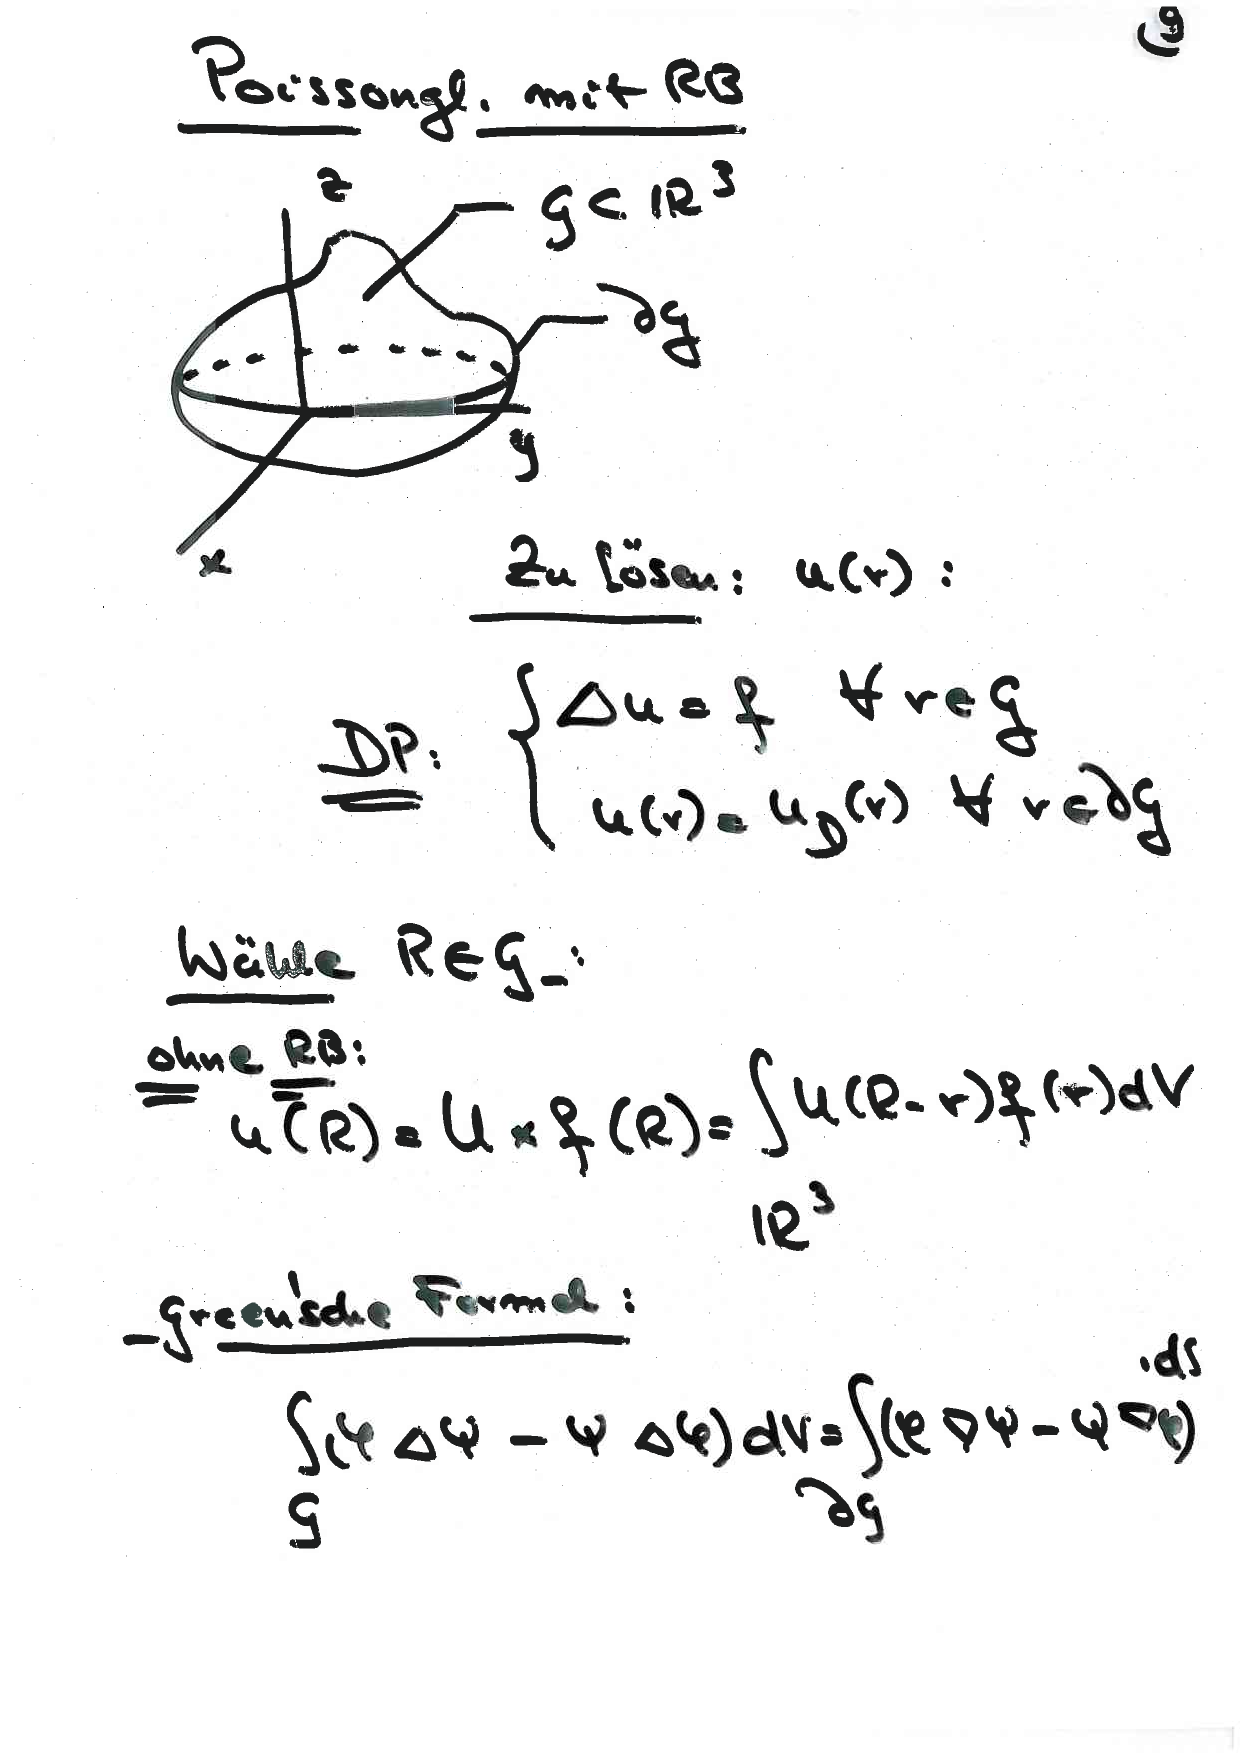 9
Poissongl. mit RB
z
G ⊂ ℝ³
∂G
y
x
Zu lösen: u(r):
DP: { Δu = f ∀ r ∈ G
u(r) = u_D(r) ∀ r ∈ ∂G
Wähle R ∈ G:
ohne RB:
u(R) = U * f(R) = ∫ U(R-r) f(r) dV
ℝ³
Green'sche Formel:
∫(φ Δψ - ψ Δφ) dV = ∫(φ ∇ψ - ψ ∇φ) · ds
G ∂G